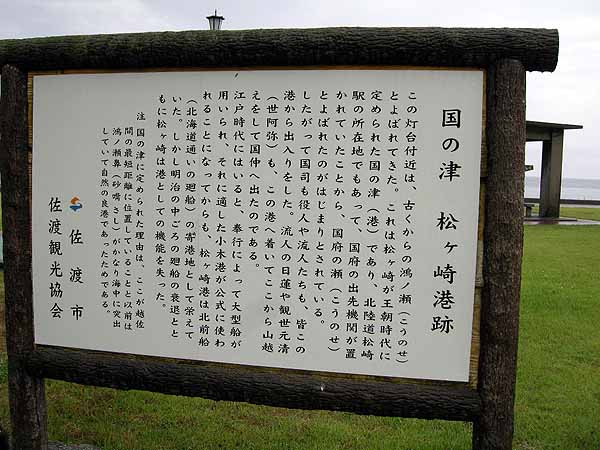 国の津 松ヶ崎港跡
この灯台付近は、古くからの鴻ノ瀬（こうのせ）
とよばれてきた。これは松ヶ崎が王朝時代に
定められた国の津（港）であり、北陸道松崎
駅の所在地でもあって、国府の出先機関が置
かれていたことから、国府の瀬（こうのせ）
とよばれたのがはじまりとされている。
したがって国司も役人や流人たちも、皆この
港から出入りをした。流人の日蓮や観世元清
（世阿弥）も、この港へ着いてここから山越
えをして国仲へ出たのである。
江戸時代にはいると、奉行によって大型船が
用いられ、それに適した小木港が公式に使わ
れることになってからも、松ヶ崎港は北前船
（北海道通いの廻船）の寄港地として栄えて
いた。しかし明治の中ごろの廻船の衰退とと
もに松ヶ崎は港としての機能を失った。
注 国の津に定められた理由は、ここが越佐
間の最短距離に位置していることと以前は
鴻ノ瀬鼻（砂嘴さし）がかなり海中に突出
していて自然の良港であったためである。
佐渡市
佐渡観光協会